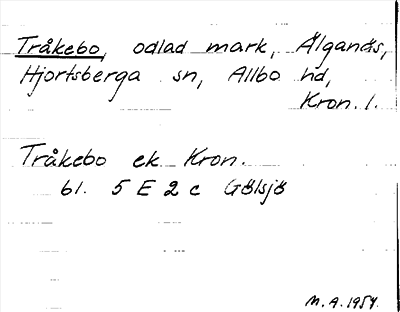 Tråkebo, odlad mark, Älganäs,
Hjortsberga sn, Allbo hd,
Kron. l.
Tråkebo ek Kron.
bl. 5 E 2 c Gölsjö
M.A. 1954.